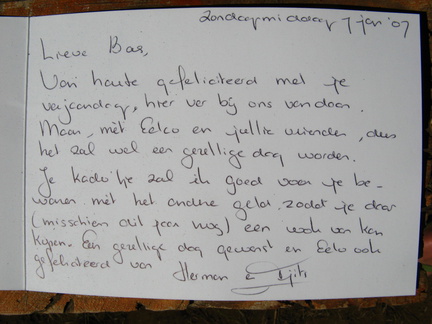 Zondagmiddag 7 jan '07
Lieve Bas,
Van harte gefeliciteerd met je
verjaardag, hier ver bij ons vandaan.
Maar, mét Eelco en jullie vrienden, dus
het zal wel een gezellige dag worden.
Je kado'tje zal ik goed voor je be-
waren met het andere geld. zodat je daar
(misschien dit jaar nog) een van kan
kopen. Een gezellige dag gewenst en Eelco ook
gefeliciteerd van Herman &